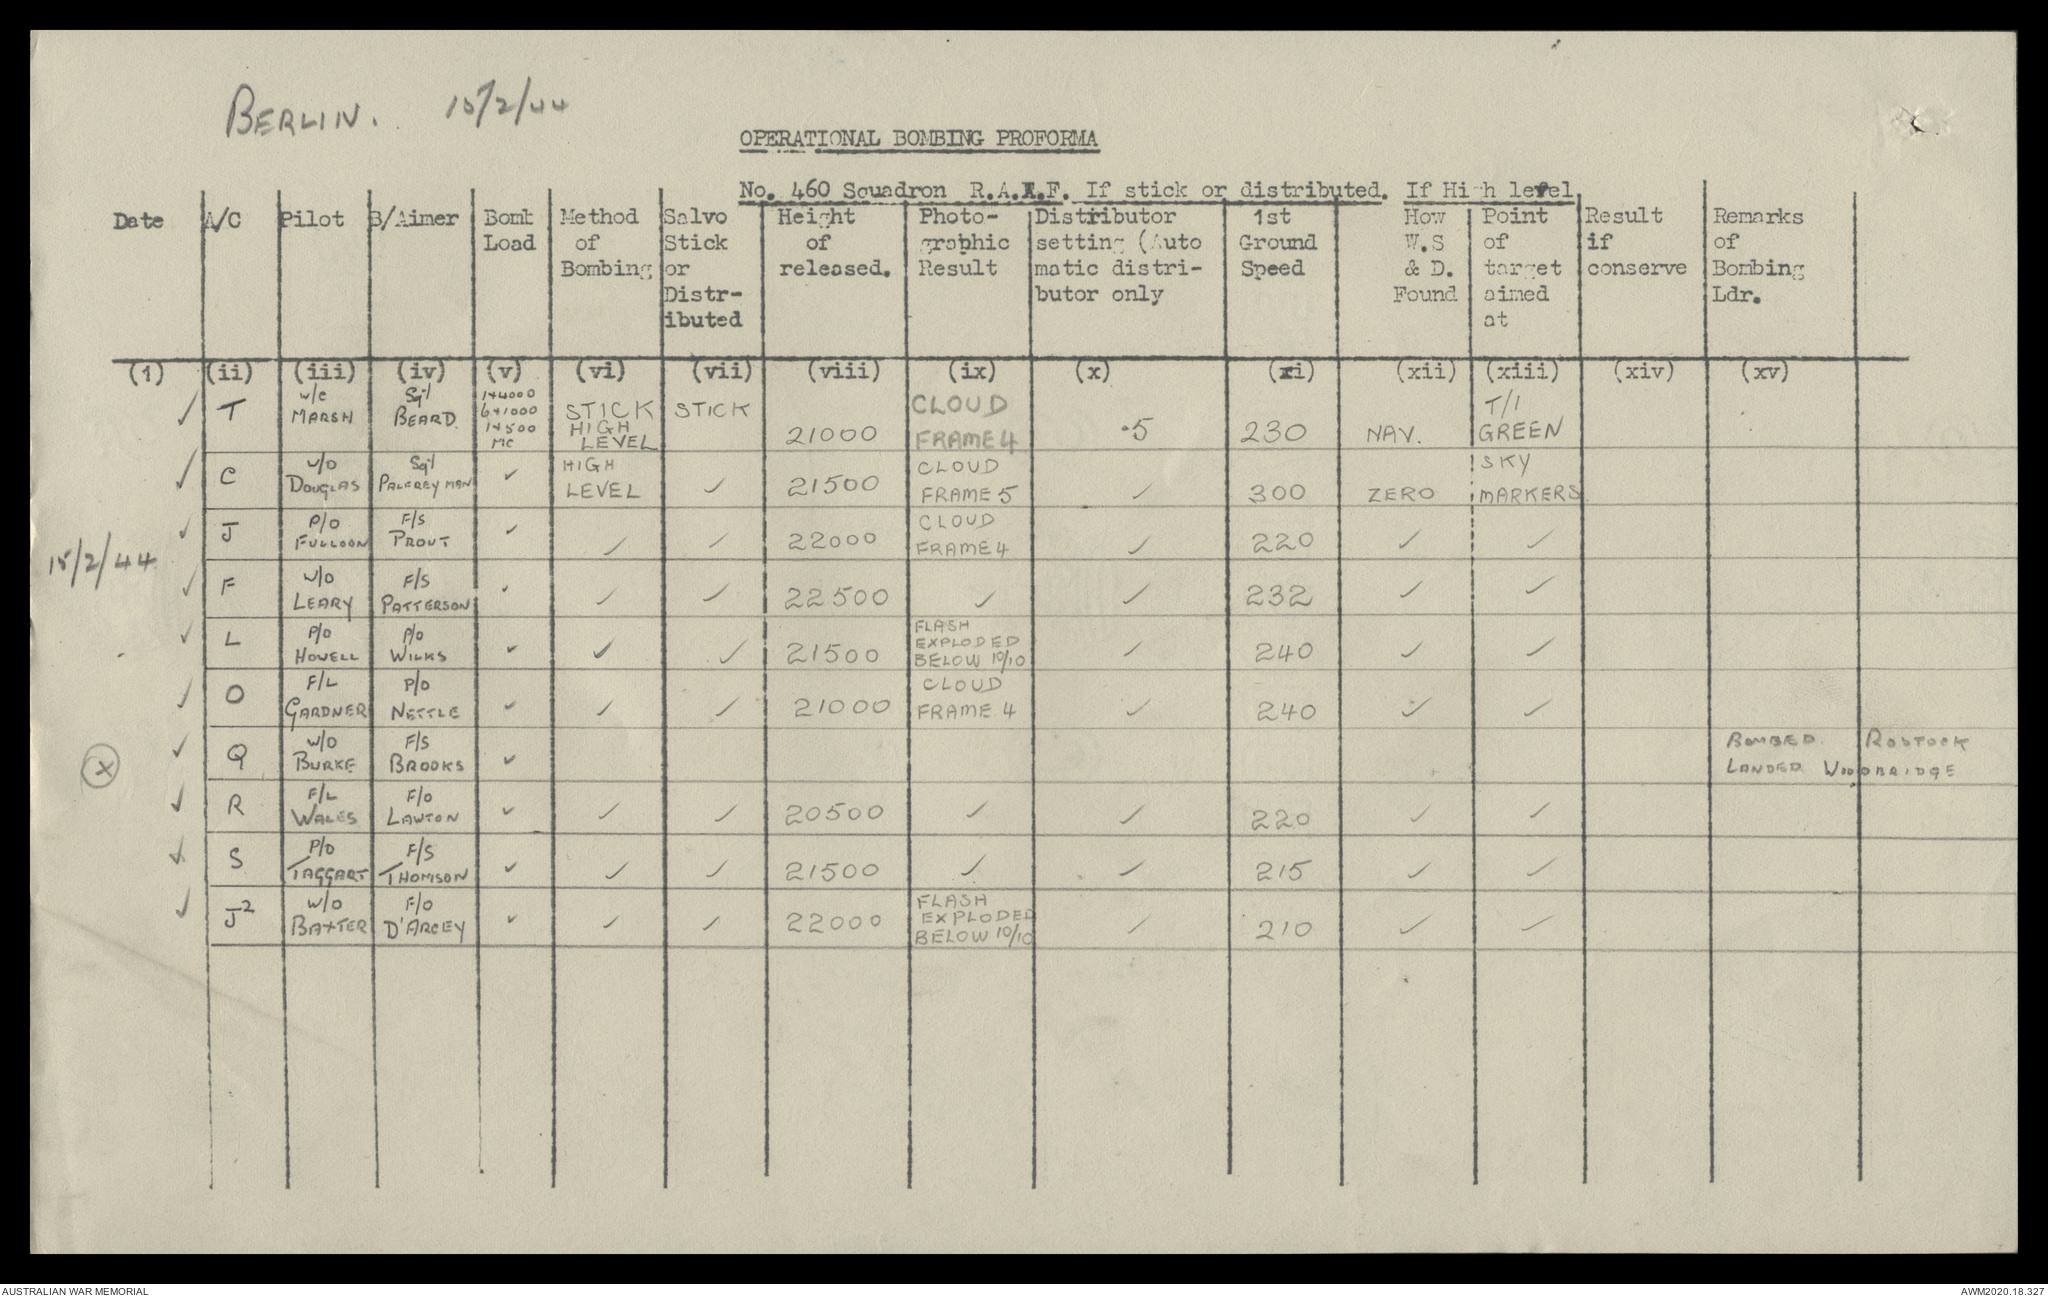 BERLIN. 15/2/44
OPERATIONAL BOMBING PROFORMA
No. 460 Squadron R.A.A.F. If stick or distributed. If High level
Date A/C Pilot B/Aimer Bomb Load Method of Bombing Salvo Stick or Distributed Height of released. Photographic Result Distributor setting (Automatic distributor only 1st Ground Speed How W.S & D. Found Point of target aimed at Result if conserve Remarks of Bombing Ldr.
(1) (ii) (iii) (iv) (v) (vi) (vii) (viii) (ix) (x) (xi) (xii) (xiii) (xiv) (xv)
✓ T W/C MARSH Sgt BEARD 1x4000 6x1000 1x500 MC STICK HIGH LEVEL STICK 21000 CLOUD FRAME 4 .5 230 NAV. T/I GREEN
✓ C W/O DOUGLAS Sgt PALFREYMAN ✓ HIGH LEVEL ✓ 21500 CLOUD FRAME 5 ✓ 300 ZERO SKY MARKERS
✓ J P/O FULLOON F/S PROUT ✓ ✓ ✓ 22000 CLOUD FRAME 4 ✓ 220 ✓ ✓
15/2/44
✓ F W/O LEARY F/S PATTERSON ✓ ✓ ✓ 22500 ✓ ✓ 232 ✓ ✓
✓ L P/O HOWELL P/O WILKS ✓ ✓ ✓ 21500 FLASH EXPLODED BELOW 10/10 ✓ 240 ✓ ✓
✓ O F/L GARDNER P/O NETTLE ✓ ✓ ✓ 21000 CLOUD FRAME 4 ✓ 240 ✓ ✓
X ✓ Q W/O BURKE F/S BROOKS ✓ BOMBED ROSTOCK LANDED WOODBRIDGE
✓ R F/L WALES F/O LAWTON ✓ ✓ ✓ 20500 ✓ ✓ 220 ✓ ✓
✓ S P/O TAGGART F/S THOMSON ✓ ✓ ✓ 21500 ✓ ✓ 215 ✓ ✓
✓ J2 W/O BAXTER F/O D'ARCEY ✓ ✓ ✓ 22000 FLASH EXPLODED BELOW 10/10 ✓ 210 ✓ ✓
AUSTRALIAN WAR MEMORIAL AWM2020.18.327